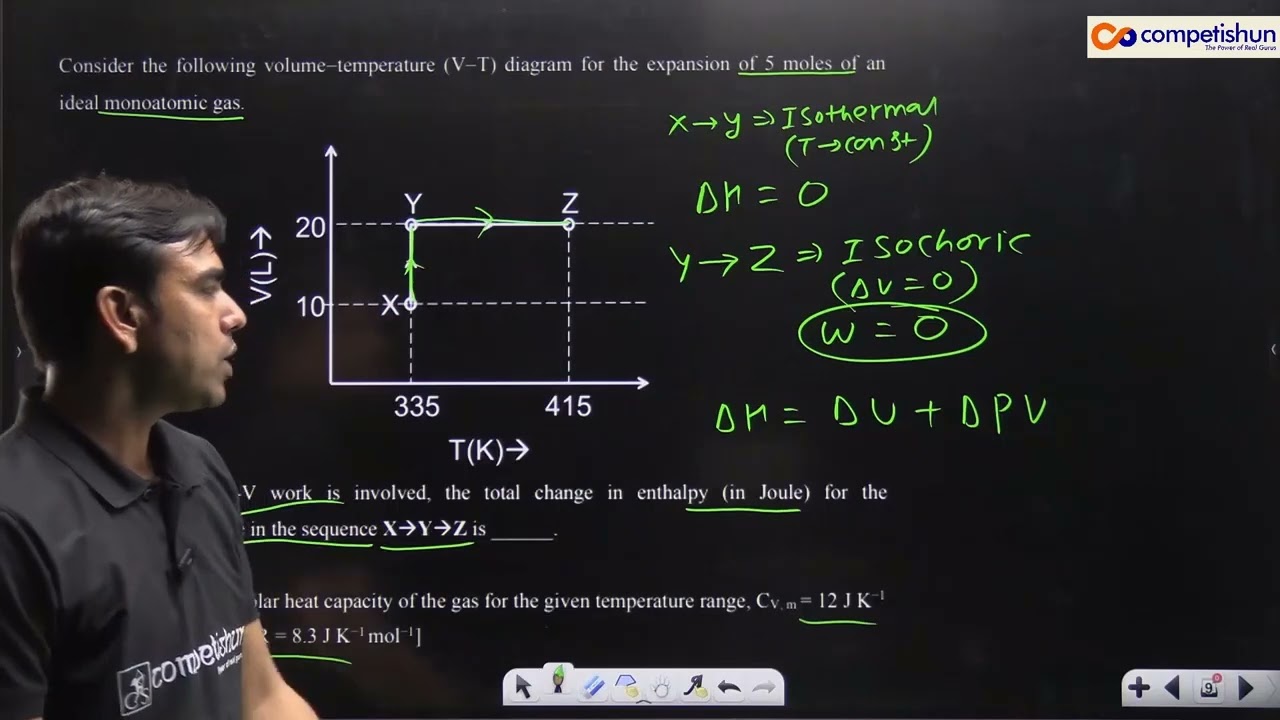 competishun
The Power of Real Gurus
Consider the following volume–temperature (V–T) diagram for the expansion of 5 moles of an
ideal monoatomic gas.
X → Y ⇒ Isothermal
(T → const)
ΔH = 0
Y → Z ⇒ Isochoric
(ΔV = 0)
W = 0
ΔH = ΔU + ΔPV
V(L)→
20
10
Y
Z
X
335
415
T(K)→
-V work is involved, the total change in enthalpy (in Joule) for the
in the sequence X→Y→Z is ______.
olar heat capacity of the gas for the given temperature range, C_V,m = 12 J K⁻¹
= 8.3 J K⁻¹ mol⁻¹]
competishun
9